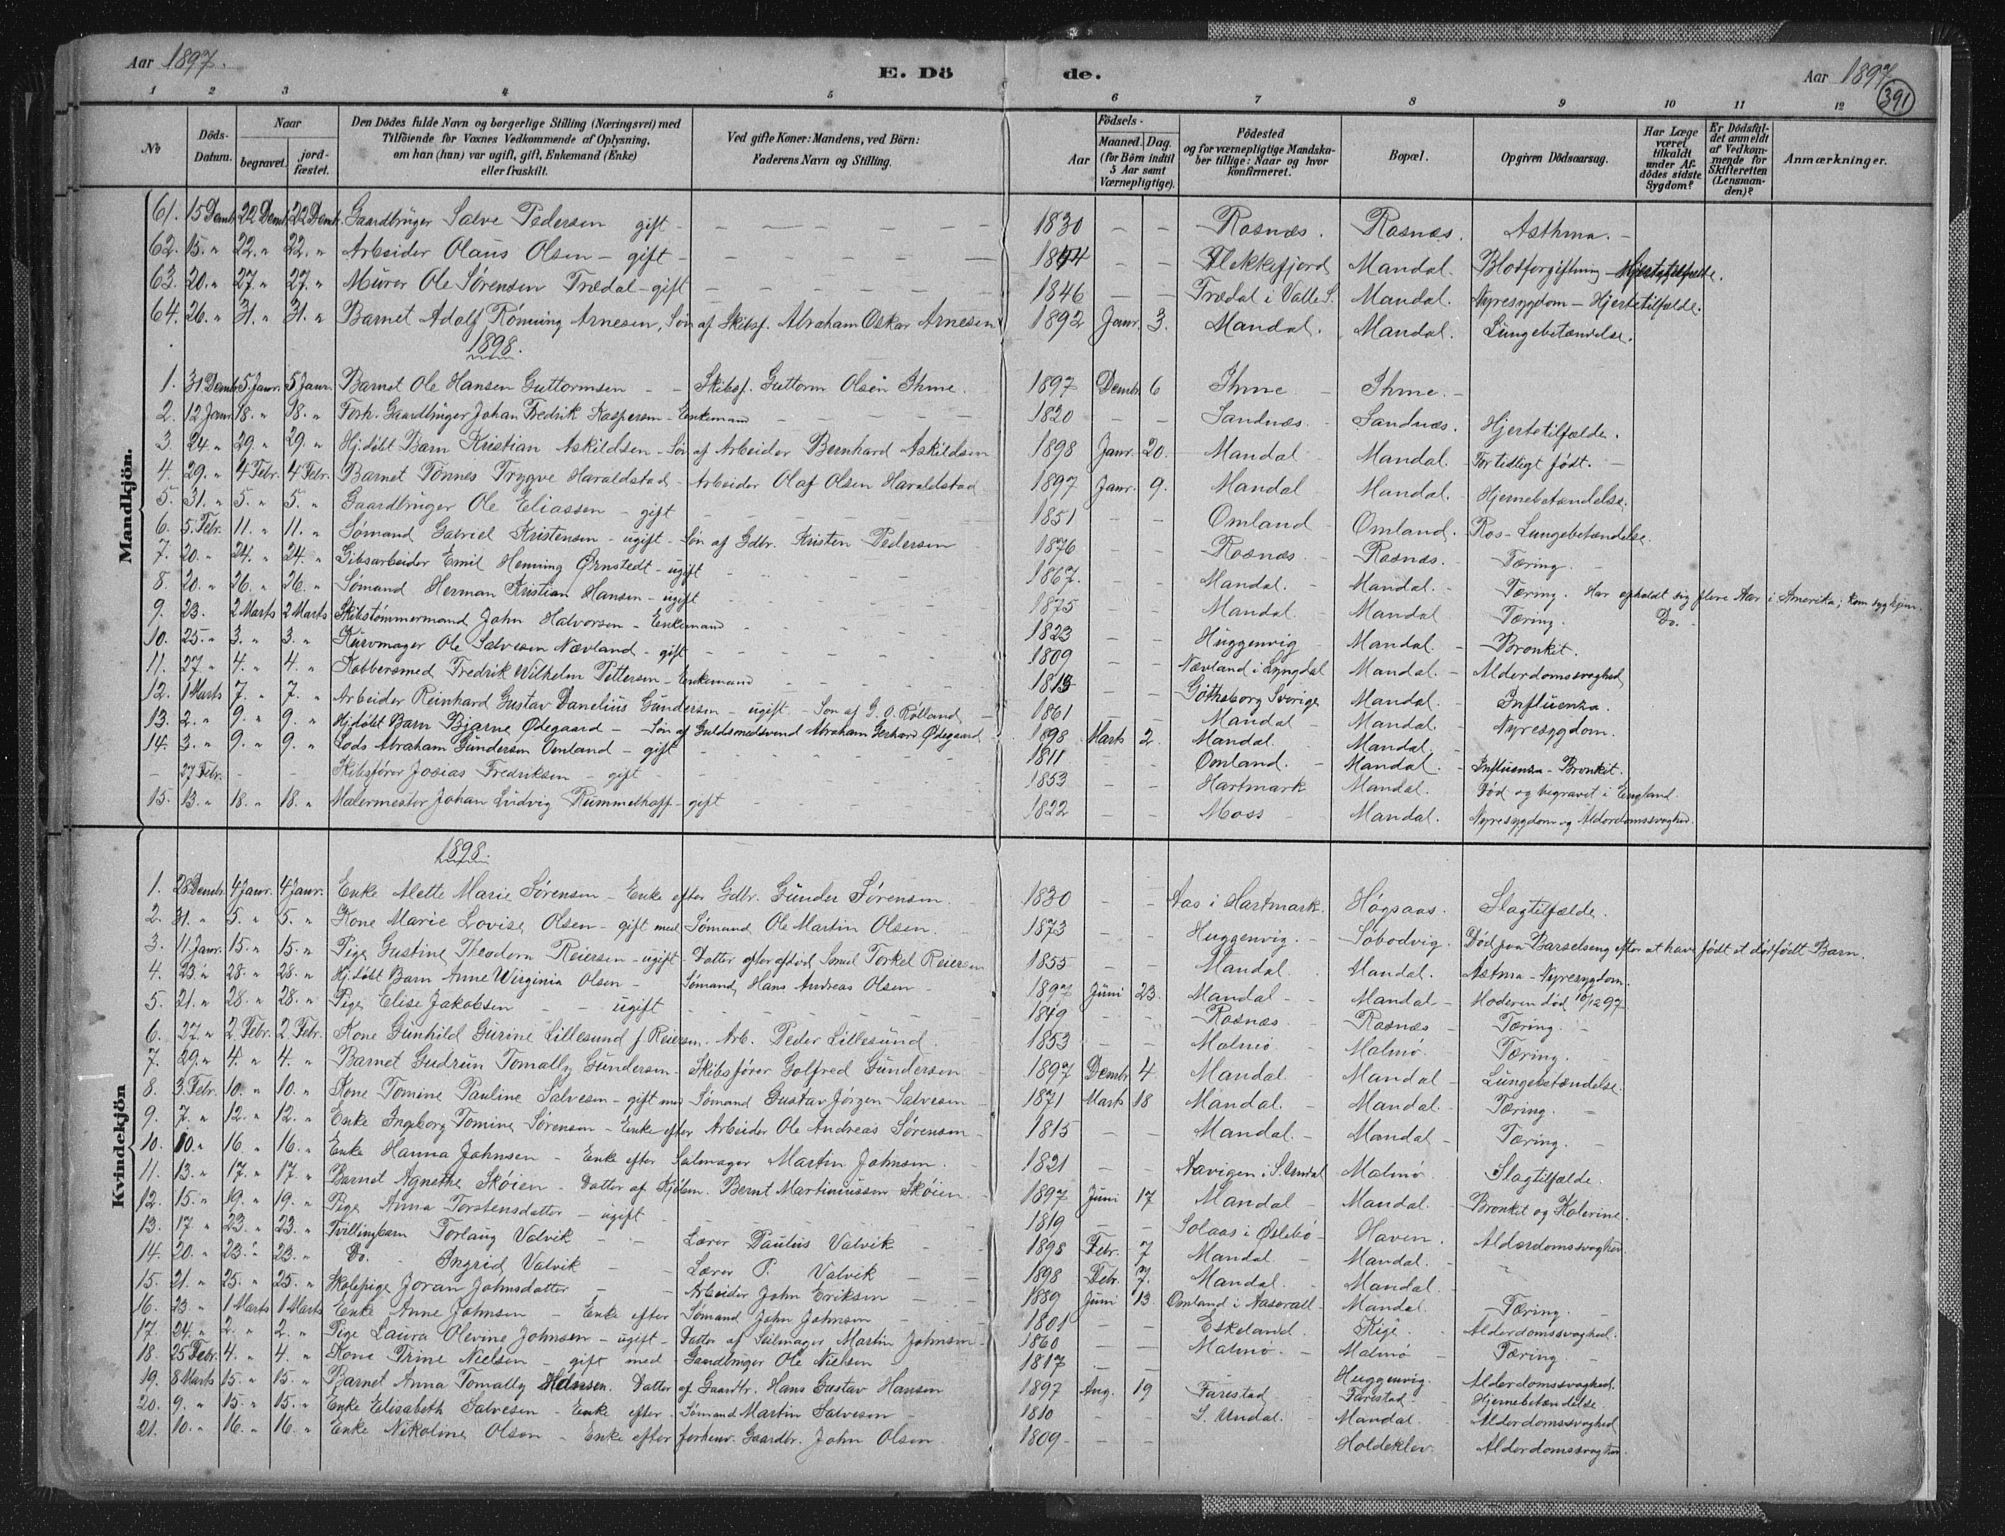 Aar 1897. E. Dö de. Aar 1897
391
1 2 3 4 5 6 7 8 9 10 11 12
No
Döds-Datum.
Naar
begravet.
jord-fæstet.
Den Dödes fulde Navn og borgerlige Stilling (Næringsvei) med
Tilföiende for Voxnes Vedkommende af Oplysning,
om han (hun) var ugift, gift, Enkemand (Enke)
eller fraskilt.
Ved gifte Koner: Mandens, ved Börn:
Faderens Navn og Stilling.
Födsels-
Aar
Maaned. Dag.
(for Börn indtil
5 Aar samt
Værnepligtige).
Födested
og for værnepligtige Mandska-
ber tillige: Naar og hvor
konfirmeret.
Bopæl.
Opgiven Dödsaarsag.
Har Læge
været
tilkaldt
under Af-
dödes sidste
Sygdom?
Er Dödsfal-
det anmeldt
af Vedkom-
mende for
Skifteretten
(Lensman-
den)?
Anmærkninger.
Mandkjön.
61. 15 Decmb. 22 Decmb. 22 Decmb. Gaardbruger Salve Pedersen gift - 1830 - - Rosnæs. Rosnæs. Asthma. -
62. 15. " 22. " 22. " Arbeider Olaus Olsen - gift - 1844 - - Flekkefjord Mandal. Blodforgiftning - Hjertetilfælde.
63. 20. " 27. " 27. " Murer Ole Sörensen Trædal - gift 1846 - - Trædal i Valle S. Mandal. Nyresygdom - Hjertetilfælde.
64. 26. " 31. " 31. " Barnet Adolf Rönning Arnesen, Sön af Skibsf. Abraham Oskar Arnesen 1892 Janr. 3. Mandal. Mandal. Lungebetændelse.
1898.
1. 31 Decmb. 5 Janr. 5 Janr. Barnet Ole Hansen Guttormsen - - Skibsf. Guttorm Olsen Ihme. 1897 Decmb. 6 Ihme - Ihme. -
2. 12 Janr. 18. " 18. " Forh. Gaardbruger Johan Fredrik Kaspersen - Enkemand 1820 - Sandnæs. Sandnæs. Hjertetilfælde.
3 24 " 29 " 29. " Hj.döbt Barn Kristian Askildsen - Sön af Arbeider Bernhard Askildsen 1898 Janr. 20. Mandal - Mandal. For tidligt født. -
4. 29. " 4 Febr. 4 Febr. Barnet Tönnes Trygve Haraldstad - Arbeider Olaf Olsen Haraldstad 1897 Janr. 9. Mandal Mandal. Hjernebetændelse.
5. 31. " 5. " 5. " Gaardbruger Ole Eliassen - gift - 1851 - - Omland - Omland. Ros - Lungebetændelse.
6. 5. Febr. 11. " 11. " Sömand Gabriel Kristensen - ugift - Sön af Gdbr. Kristen Pedersen 1876 - - Rosnæs. Rosnæs. Tæring. -
7. 20. " 24. " 24. " Gibsarbeider Emil Henning Örnstedt - ugift 1867. - - Mandal. Mandal. Tæring. Har opholdt sig flere Aar i Amerika; Kom syg hjem
8. 20. " 26. " 26. " Sömand Herman Kristian Hansen - ugift 1875 - - Mandal Mandal Tæring. Do.
9. 23. 2 Marts 2 Marts Skibstömmermand John Halvorsen - Enkemand 1823 - Huggenvig - Mandal - Bronkit.
10. 25. " 3. " 3. " Kurvmager Ole Salvesen Nævland - gift 1809 - - Nævland i Lyngdal Mandal. - Alderdomssvaghed
11. 27 " 4. " 4. " Kobbersmed Fredrik Wilhelm Pettersen - Enkemand 1813 - - Götheborg Sverige Mandal. Influenza.
12. 1 Marts 7. " 7. " Arbeider Reinhard Gustav Danelius Gundersen - ugift - Sön af G. O. Rölland 1861 - Mandal - Mandal. - Nyresygdom.
13. 2. " 9. " 9. " Hj.döbt Barn Bjarne Ödegaard - Sön af Guldsmedsvend Abraham Gerhard Ödegaard 1898 Marts 2. Mandal. Mandal. -
14. 3. " 9. " 9. " Lods Abraham Gundersen Omland - gift 1811 - Omland. - Mandal - Influenza - Bronkit.
- 27 Febr. - - Skibsförer Josias Fredriksen - gift 1853 - - Hartmark Mandal. Död og begravet i England.
15. 13. " 18. " 18. " Malermester Johan Ludvig Rummelhoff - gift 1822 - - Moss - Mandal. Nyresygdom og Alderdomssvaghed.
Kvindekjön
1898.
1. 28 Decmb. 4 Janr. 4 Janr. Enke Alette Marie Sörensen - Enke efter Gdbr. Gunder Sörensen. 1830 - - Aas i Hartmark. Högsaas. Slagtilfælde.
2. 31. " 5. " 5. " Kone Marie Lovise Olsen - gift med Sömand Ole Martin Olsen. 1873 - - Huggenvig. - Söbodvig. Död paa Barselseng efter at have født et dödfødt Barn.
3. 11 Janr. 15. " 15. " Pige Gustine Theodora Reiersen - ugift - Datter af afdöd Torkel Reiersen 1855 - - Mandal. Mandal. Astma - Nyresygdom.
4. 23. " 28. " 28. " Hj.döbt Barn Anne Virginia Olsen - Sömand Hans Andreas Olsen - 1897 Juni 23. Mandal - Mandal - Moderen död 10/12 97
5. 21. " 28. " 28. " Pige Elise Jakobsen - - ugift 1849 - - Rosnæs - Rosnæs - Tæring. -
6. 27 " 2 Febr. 2 Febr. Kone Gunhild Gurine Lillesund f. Reiersen. Arb. Peder Lillesund. 1853 - - Malmö - Malmö. Tæring. -
7. 29. " 4. " 4. " Barnet Gudrun Tomally Gundersen - Skibsförer Golfred Gundersen 1897 Decmb. 4. Mandal. - Mandal - Lungebetændelse.
8. 3. Febr. 10. " 10. " Kone Tomine Pauline Salvesen - gift med Sömand Gustav Jörgen Salvesen - 1871 Marts 18 Mandal. - Mandal. - Tæring. -
9. 7. " 12. " 12. " Enke Ingeborg Tomine Sörensen - Enke efter Arbeider Ole Andreas Sörensen - 1815 - - Mandal. - Mandal - Tæring. -
10. 10. " 16 " 16. " Enke Hanna Johnsen - Enke efter Seilmager Martin Johnsen. 1821 - - Aavigen i S. Undal Malmö - Slagtilfælde.
11. 13. " 17. " 17. " Barnet Agnethe Sköien - Datter af Kjöbm. Bernt Martiniussen Sköien 1897 Juni 17 Mandal - Mandal. Bronkit og Kolerine.
12. 15. " 19. " 19. " Pige Anna Torstensdatter - ugift - 1819 - - Solaas i Öslebö - Haven. - Alderdomssvaghed.
13. 17 " 23. " 23. " Tvillingbarn Torlaug Valvik - - Lærer Paulus Valvik - 1898 Febr. 7 Mandal - Mandal. -
14. 20. " 23. " 23. " Do. - Ingrid Valvik - Lærer P. Valvik - 1898 Febr. 7. Mandal. - Mandal.
15. 21. " 25. " 25. " Skolepige Joran Johnsdatter - Arbeider John Eriksen - 1889 Juni 13. Omland i Aaseral - Mandal. Tæring. -
16. 23 " 1 Marts 1 Marts Enke Anne Johnsen - Enke efter Sömand John Johnsen - 1801 - - Eskeland. - Kige. - Alderdomssvaghed.
17. 24. " 2. " 2. " Pige Laura Olevine Johnsen - ugift - Datter af Seilmager Martin Johnsen 1860 - - Malmö. - Malmö Tæring. -
18. 25 Febr. 4. " 4. " Kone Trine Nielsen - gift med Gaardbruger Ole Nielsen 1817 - - Huggenvig. Alderdomssvaghed.
19. 8 Marts 15. " 15. " Barnet Anna Tomally Hansen. Datter af Gaardbr. Hans Gustav Hansen 1897 Aug. 19 Farestad Farestad. Hjernebetændelse
20. 9. " 15. " 15. " Enke Elisabeth Salvesen - Enke efter Sömand Martin Salvesen - 1810 - - S. Undal. Mandal. - Alderdomssvaghed
21. 10. " 16. " 16. " Enke Nikoline Olsen - Enke efter forhenv. Gaardbr. John Olsen. 1809 - - Holdeklev. Alderdomssvaghed.